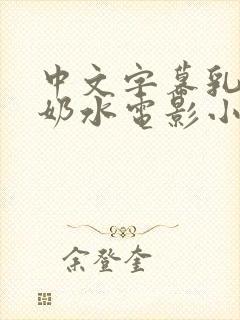 中文字幕乳
奶水电影小
余登奎